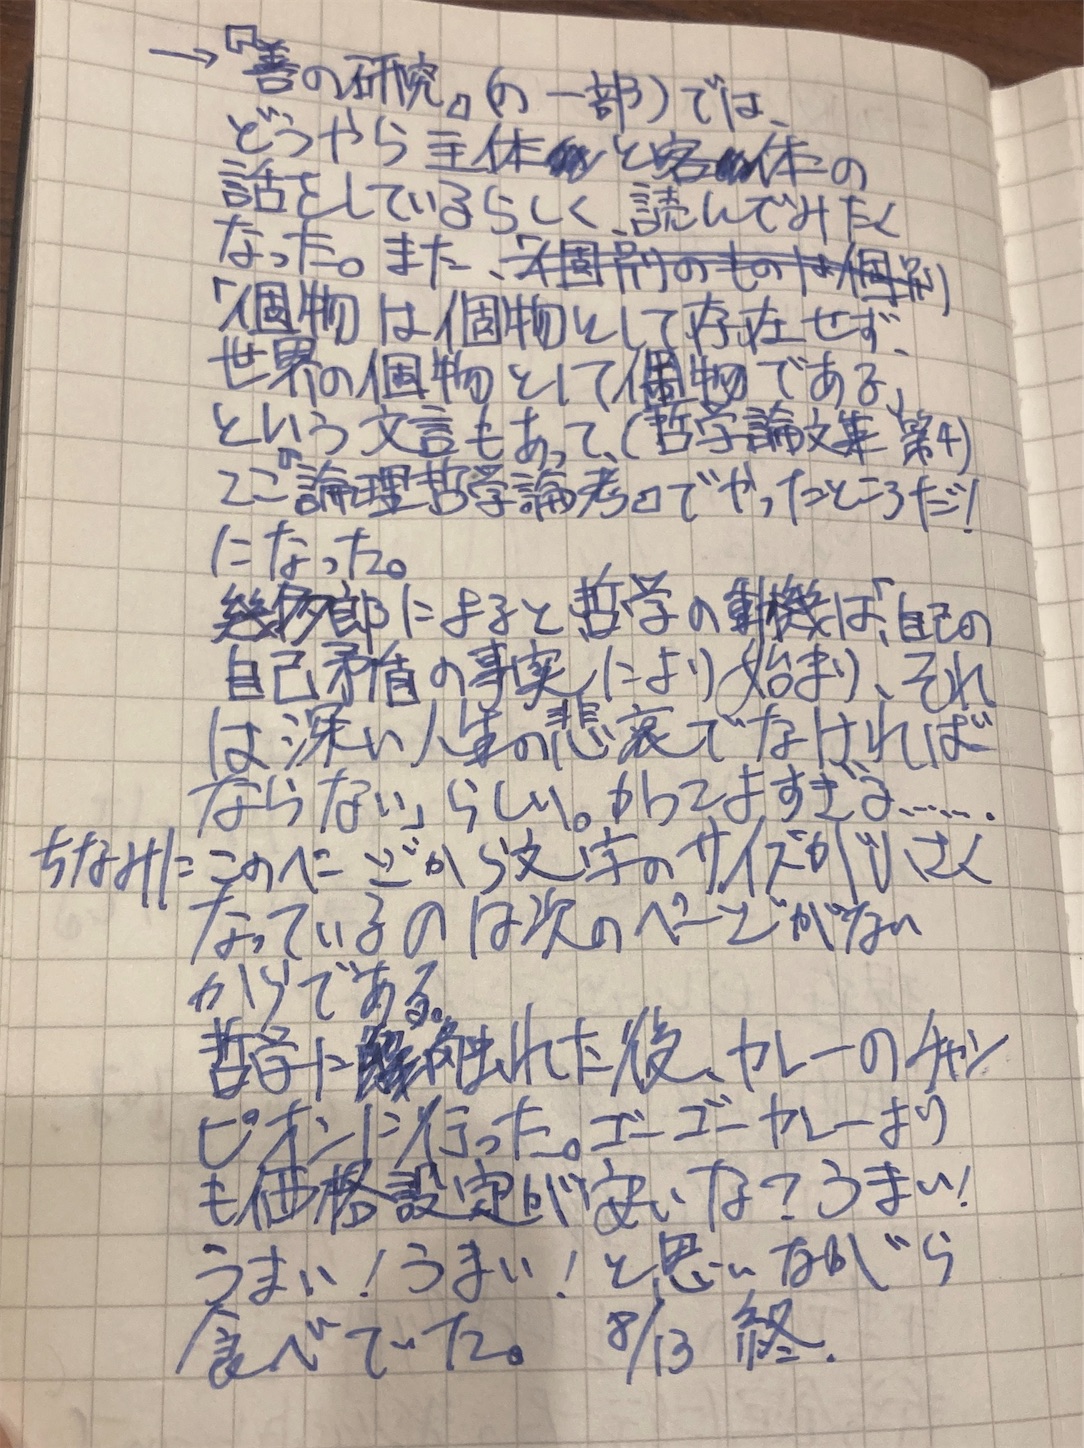 →『善の研究』(の一部)では、
どうやら主体と客体の
話をしているらしく、読んでみたく
なった。また、「個別のものは個別
「個物は個物として存在せず、
世界の個物として個物である」
という文言もあって、(哲学論文集 第4)
ここの『論理哲学論考』でやったところだ!
になった。
幾多郎によると哲学の動機は、「自己の
自己矛盾の事実により始まり、それ
は深い人生の悲哀でなければ
ならない」らしい。かっこよすぎる……
ちなみにこのページから文字のサイズが小さく
なっているのは次のページがない
からである。
哲学に触れた後、カレーのチャン
ピオンに行った。ゴーゴーカレーより
も価格設定が安いな?うまい!
うまい!うまい!と思いながら
食べていた。 8/13 終.